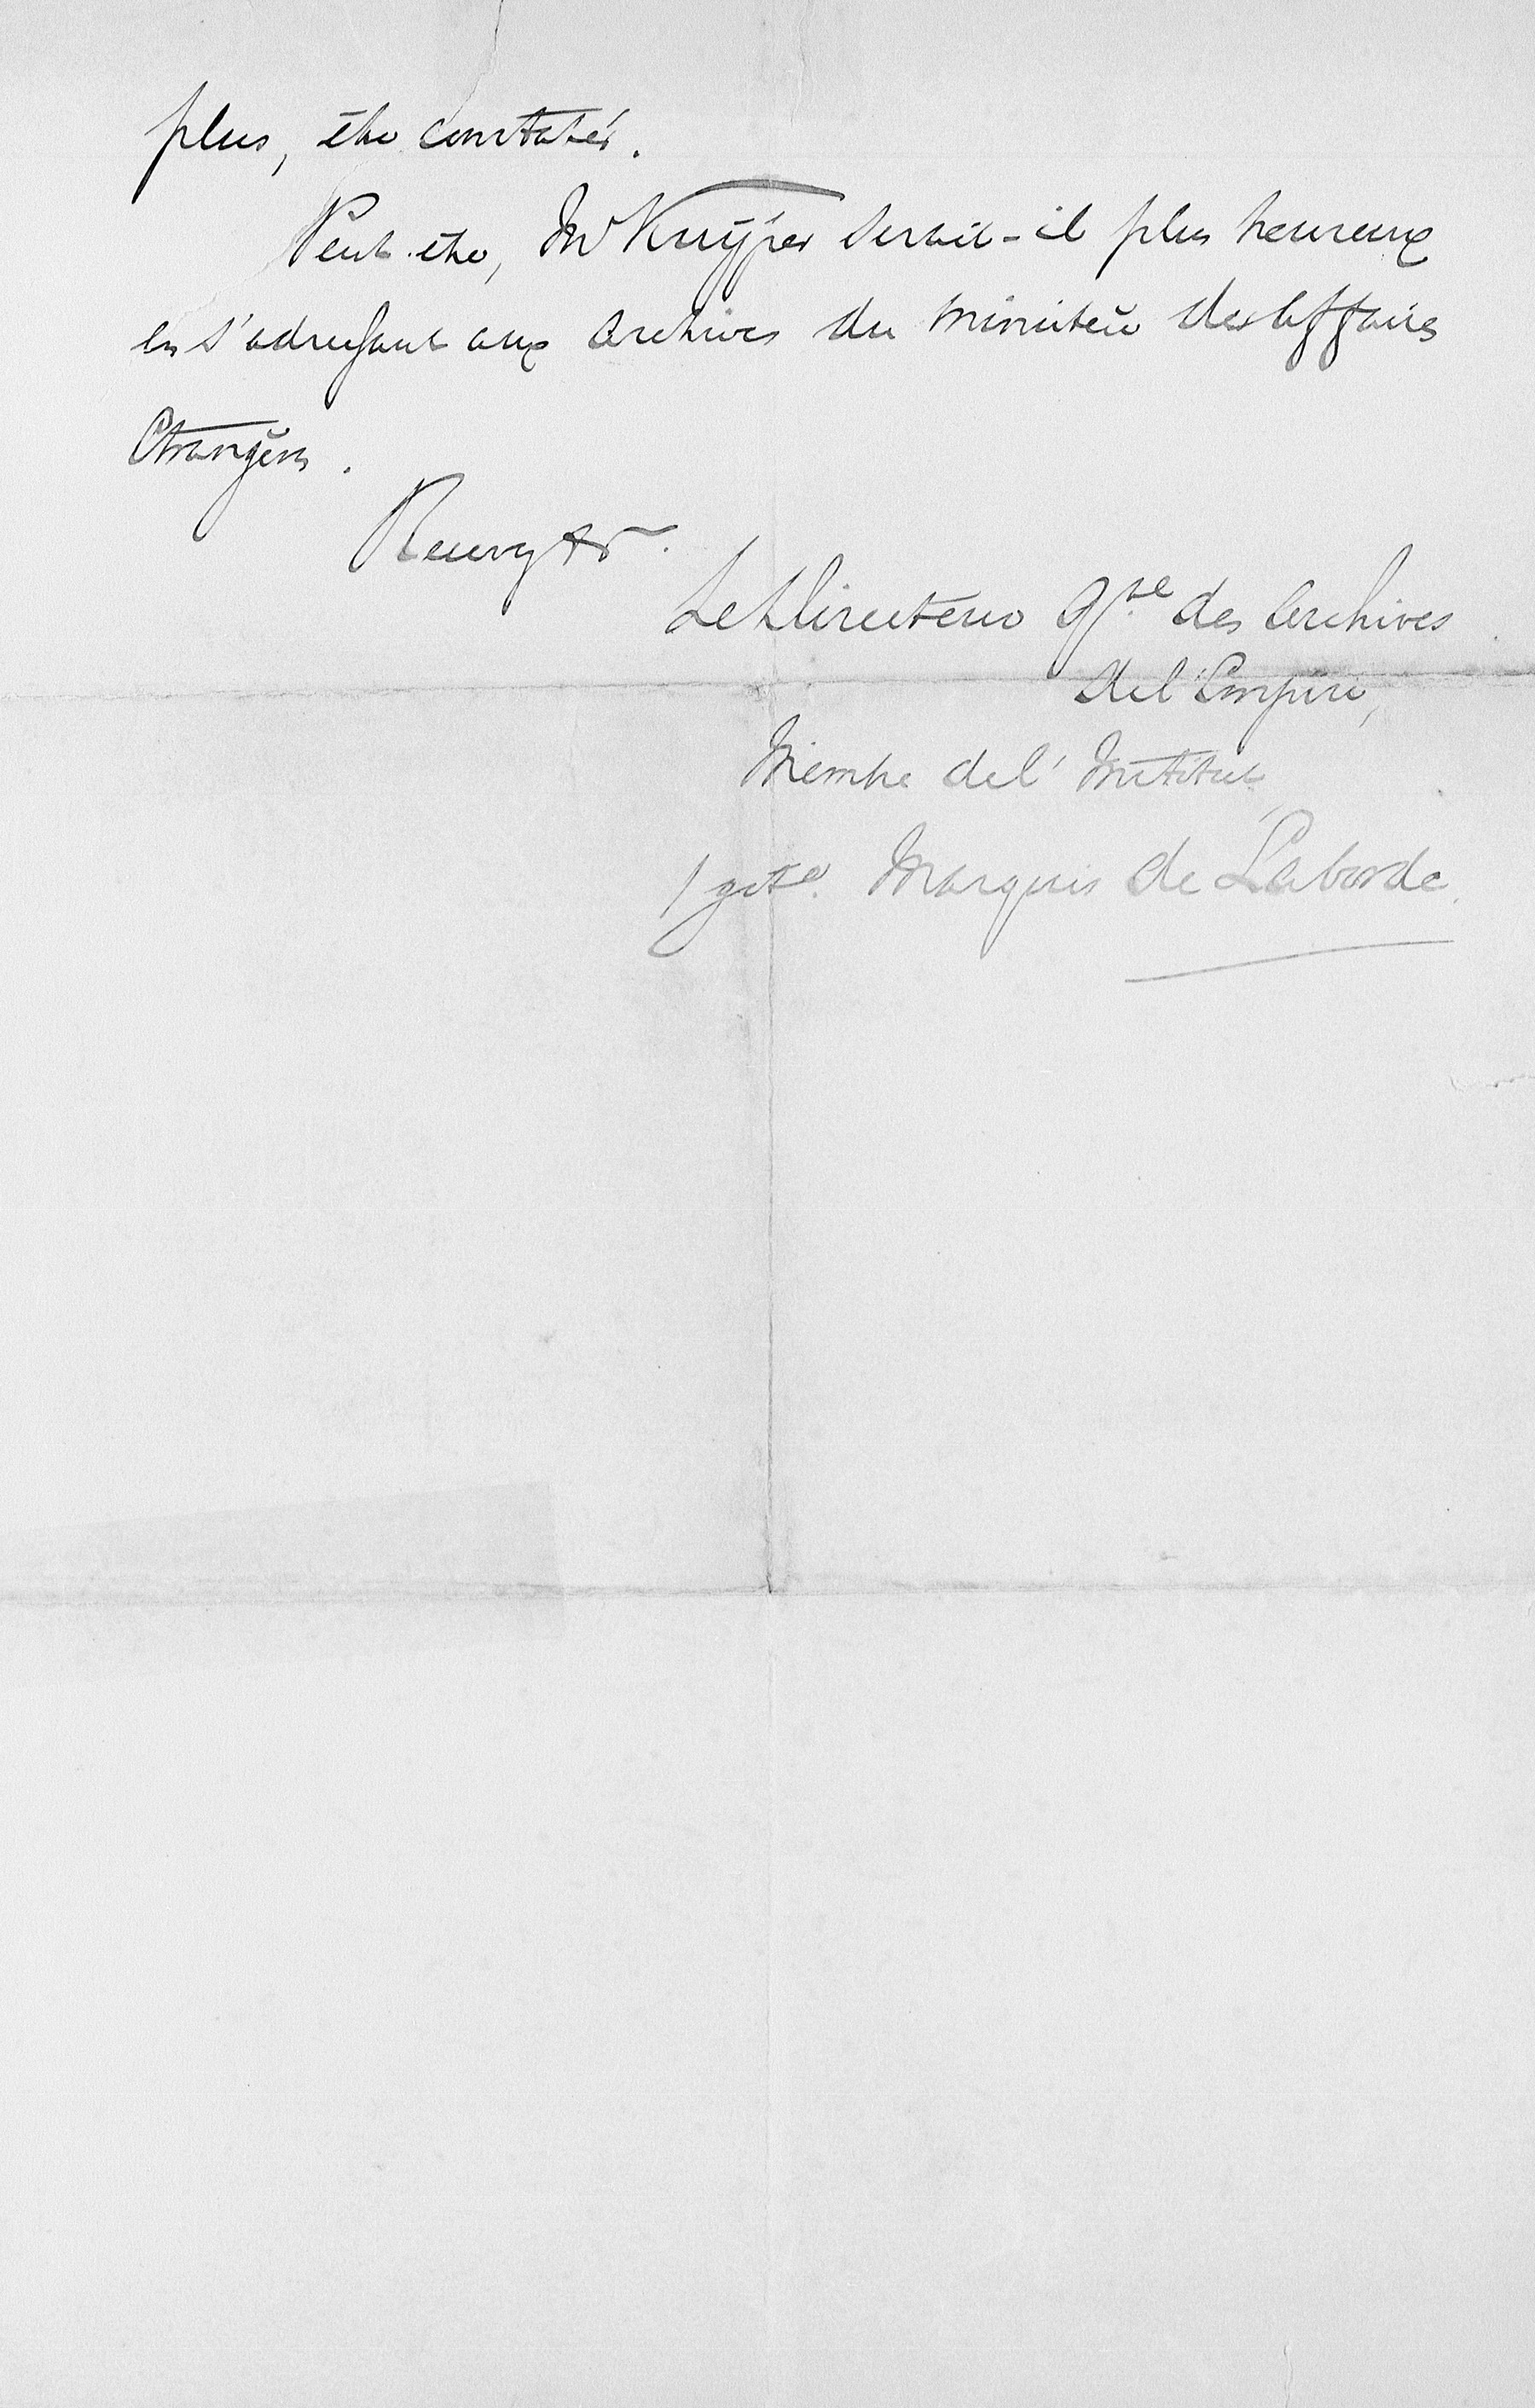 plus, être constatés.
Peut-être, Mr Kuÿper serait-il plus heureux
en s'adressant aux Archives du Ministère des Affaires
Étrangères.
Recevez &&
Le Directeur Gal des Archives
de l'Empire,
Membre de l'Institut,
Marquis de Laborde.